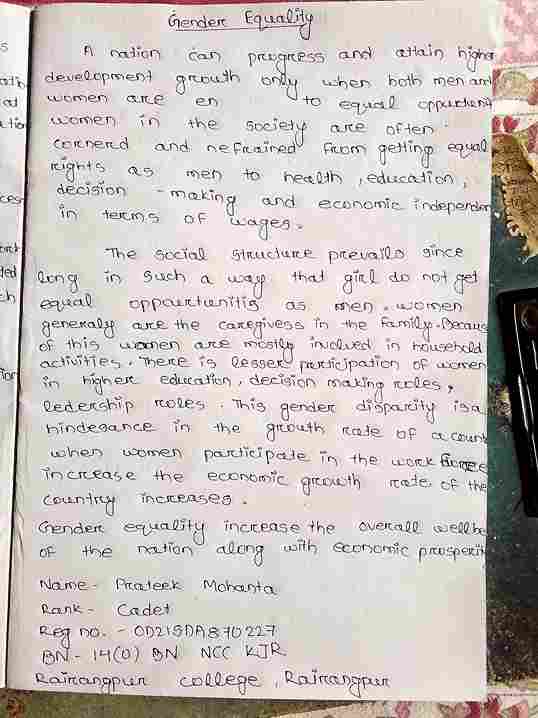 Gender Equality
A nation can progress and attain higher
development growth only when both men and
women are en to equal oppurtenit
women in the society are often
cornered and nefrained from getting equal
rights as men to health, education,
decision - making and economic independen
in terms of wages.
The social structure prevails since
long in such a way that girl do not get
equal oppourtunitis as men. women
generaly are the caregivess in the family. Becaus
of this women are mostly involved in household
activities. There is lesser participation of women
in higher education, decision making roles,
ledership roles. This gender disparity is a
hindesance in the growth rate of a count
when women participate in the work force
increase the economic growth rate of the
country increases.
Gender equality increase the overall wellbe
of the nation along with economic prosperit
Name - Prateek Mohanta
Rank - Cadet
Reg no. - OD21SDA870227
BN - 14(O) BN NCC KJR
Rairangpur college, Rairangpur
s
at
ces
ted
ch